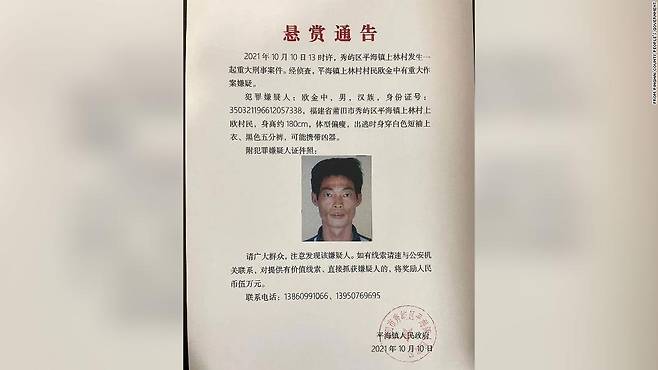 悬赏通告
2021年10月10日13时许，秀屿区平海镇上林村发生一
起重大刑事案件。经侦查，平海镇上林村村民欧金中有重大作
案嫌疑。
犯罪嫌疑人：欧金中、男，汉族，身份证号：
350321196612057338，福建省莆田市秀屿区平海镇上林村上
欧村民，身高约180cm，体型偏瘦，出逃时身穿白色短袖上
衣、黑色五分裤，可能携带凶器。
附犯罪嫌疑人证件照：
请广大群众，注意发现该嫌疑人。如有线索请速与公安机
关联系，对提供有价值线索、直接抓获嫌疑人的，将奖励人民
币伍万元。
联系电话：13860991066、13950769695
平海镇人民政府
2021年10月10日